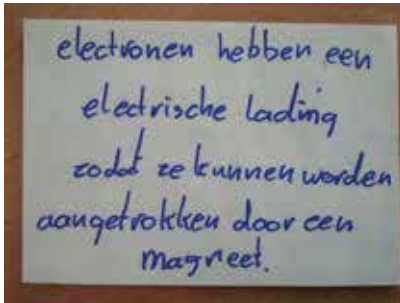 electronen hebben een
electrische lading
zodat ze kunnen worden
aangetrokken door een
magneet.